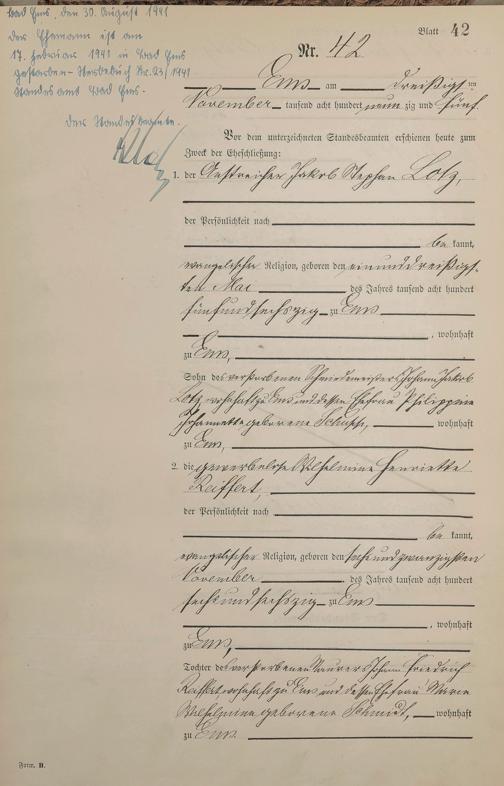 Bad Ems, den 30. August 1941
Der Ehemann ist am
17. Februar 1941 in Bad Ems
gestorben - Sterbebuch Nr. 23/1941
Standesamt Bad Ems.
Der Standesbeamte.
Blatt 42
Nr. 42
Ems am dreißigsten
November tausend acht hundert neunzig und fünf
Vor dem unterzeichneten Standesbeamten erschienen heute zum
Zweck der Eheschließung:
1. der Anstreicher Jakob Stephan Lotz,
der Persönlichkeit nach
bekannt,
evangelischer Religion, geboren den einunddreißigs-
ten Mai des Jahres tausend acht hundert
fünfundsechszig zu Ems
, wohnhaft
zu Ems,
Sohn des verstorbenen Schmiedemeisters Johann Jakob
Lotz wohnhaft zu Ems und dessen Ehefrau Philippine
Johannette geborene wohnhaft
zu Ems,
2. die gewerbelose Wilhelmine Henriette
Reiffert,
der Persönlichkeit nach
bekannt,
evangelischer Religion, geboren den sechsundzwanzigsten
November des Jahres tausend acht hundert
sechsundsechszig zu Ems
, wohnhaft
zu Ems,
Tochter des verstorbenen Maurers Johann Friedrich
Reiffert wohnhaft zu Ems und dessen Ehefrau Marie
Wilhelmine geborene Schmidt, wohnhaft
zu Ems.
Form. B.